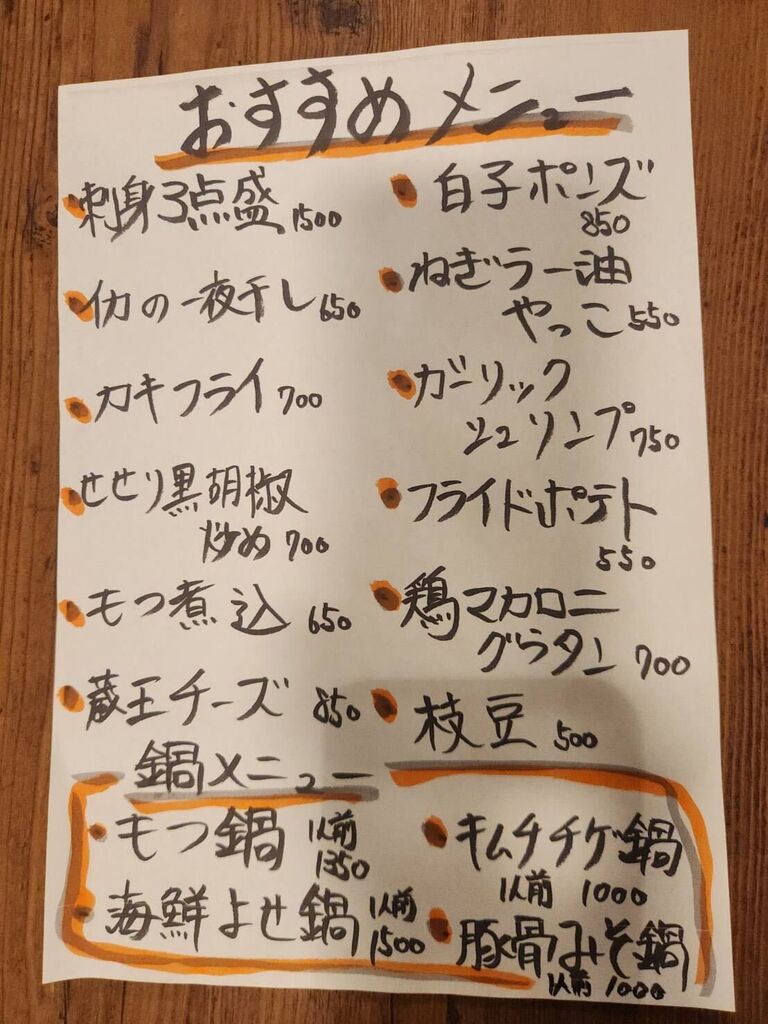 おすすめメニュー
刺身3点盛 1500
イカの一夜干し 650
カキフライ 700
せせり黒胡椒
炒め 700
もつ煮込 650
蔵王チーズ 850
白子ポンズ
850
ねぎラー油
やっこ 550
ガーリック
シュリンプ 750
フライドポテト
550
鶏マカロニ
グラタン 700
枝豆 500
鍋メニュー
もつ鍋 1人前
1350
海鮮よせ鍋 1人前
1500
キムチチゲ鍋
1人前 1000
豚骨みそ鍋
1人前 1000